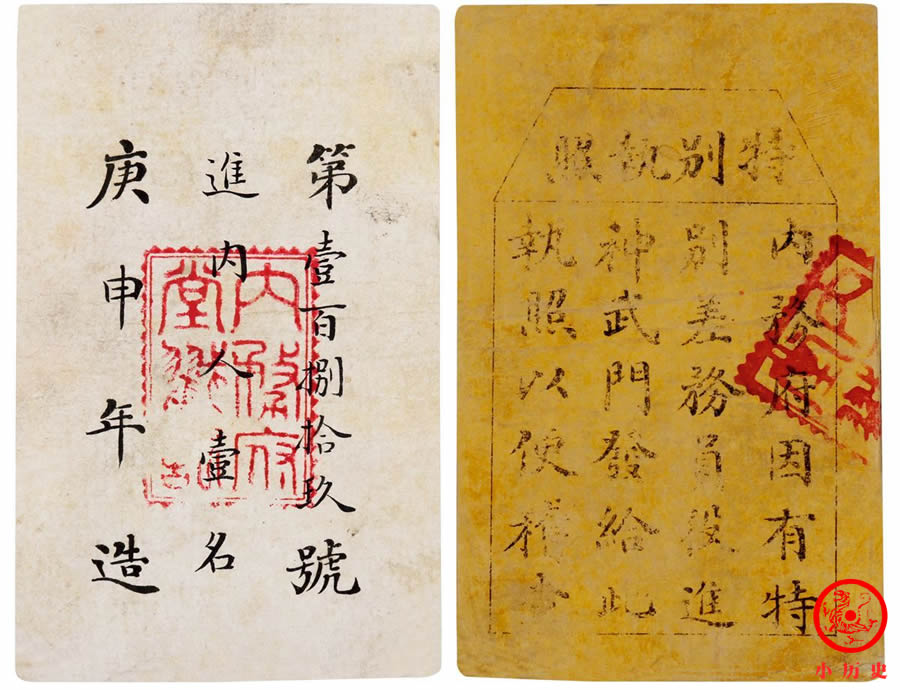 第壹百捌拾玖號
進內人壹名
庚申年造
內務府
堂
特別執照
內務府因有特
別差務員役進
神武門發給此
執照以便稽查
小历史